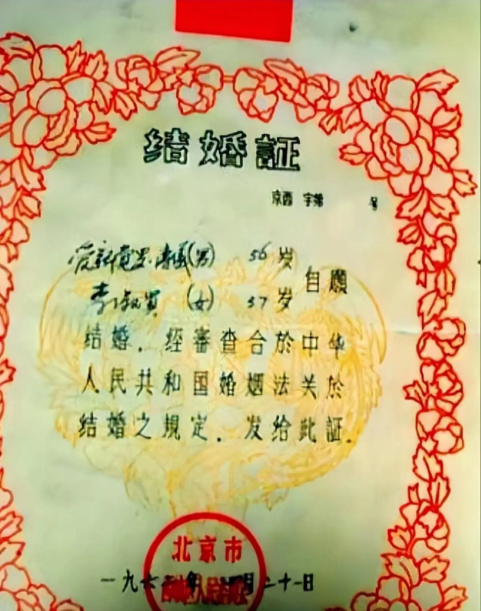 结婚証
京西 字第 号
爱新觉罗·溥仪(男) 56岁
李淑贤 (女) 37岁
自願
结婚，经審查合於中华
人民共和国婚姻法关於
结婚之規定，发给此証。
北京市
一九六 年 月二十一日